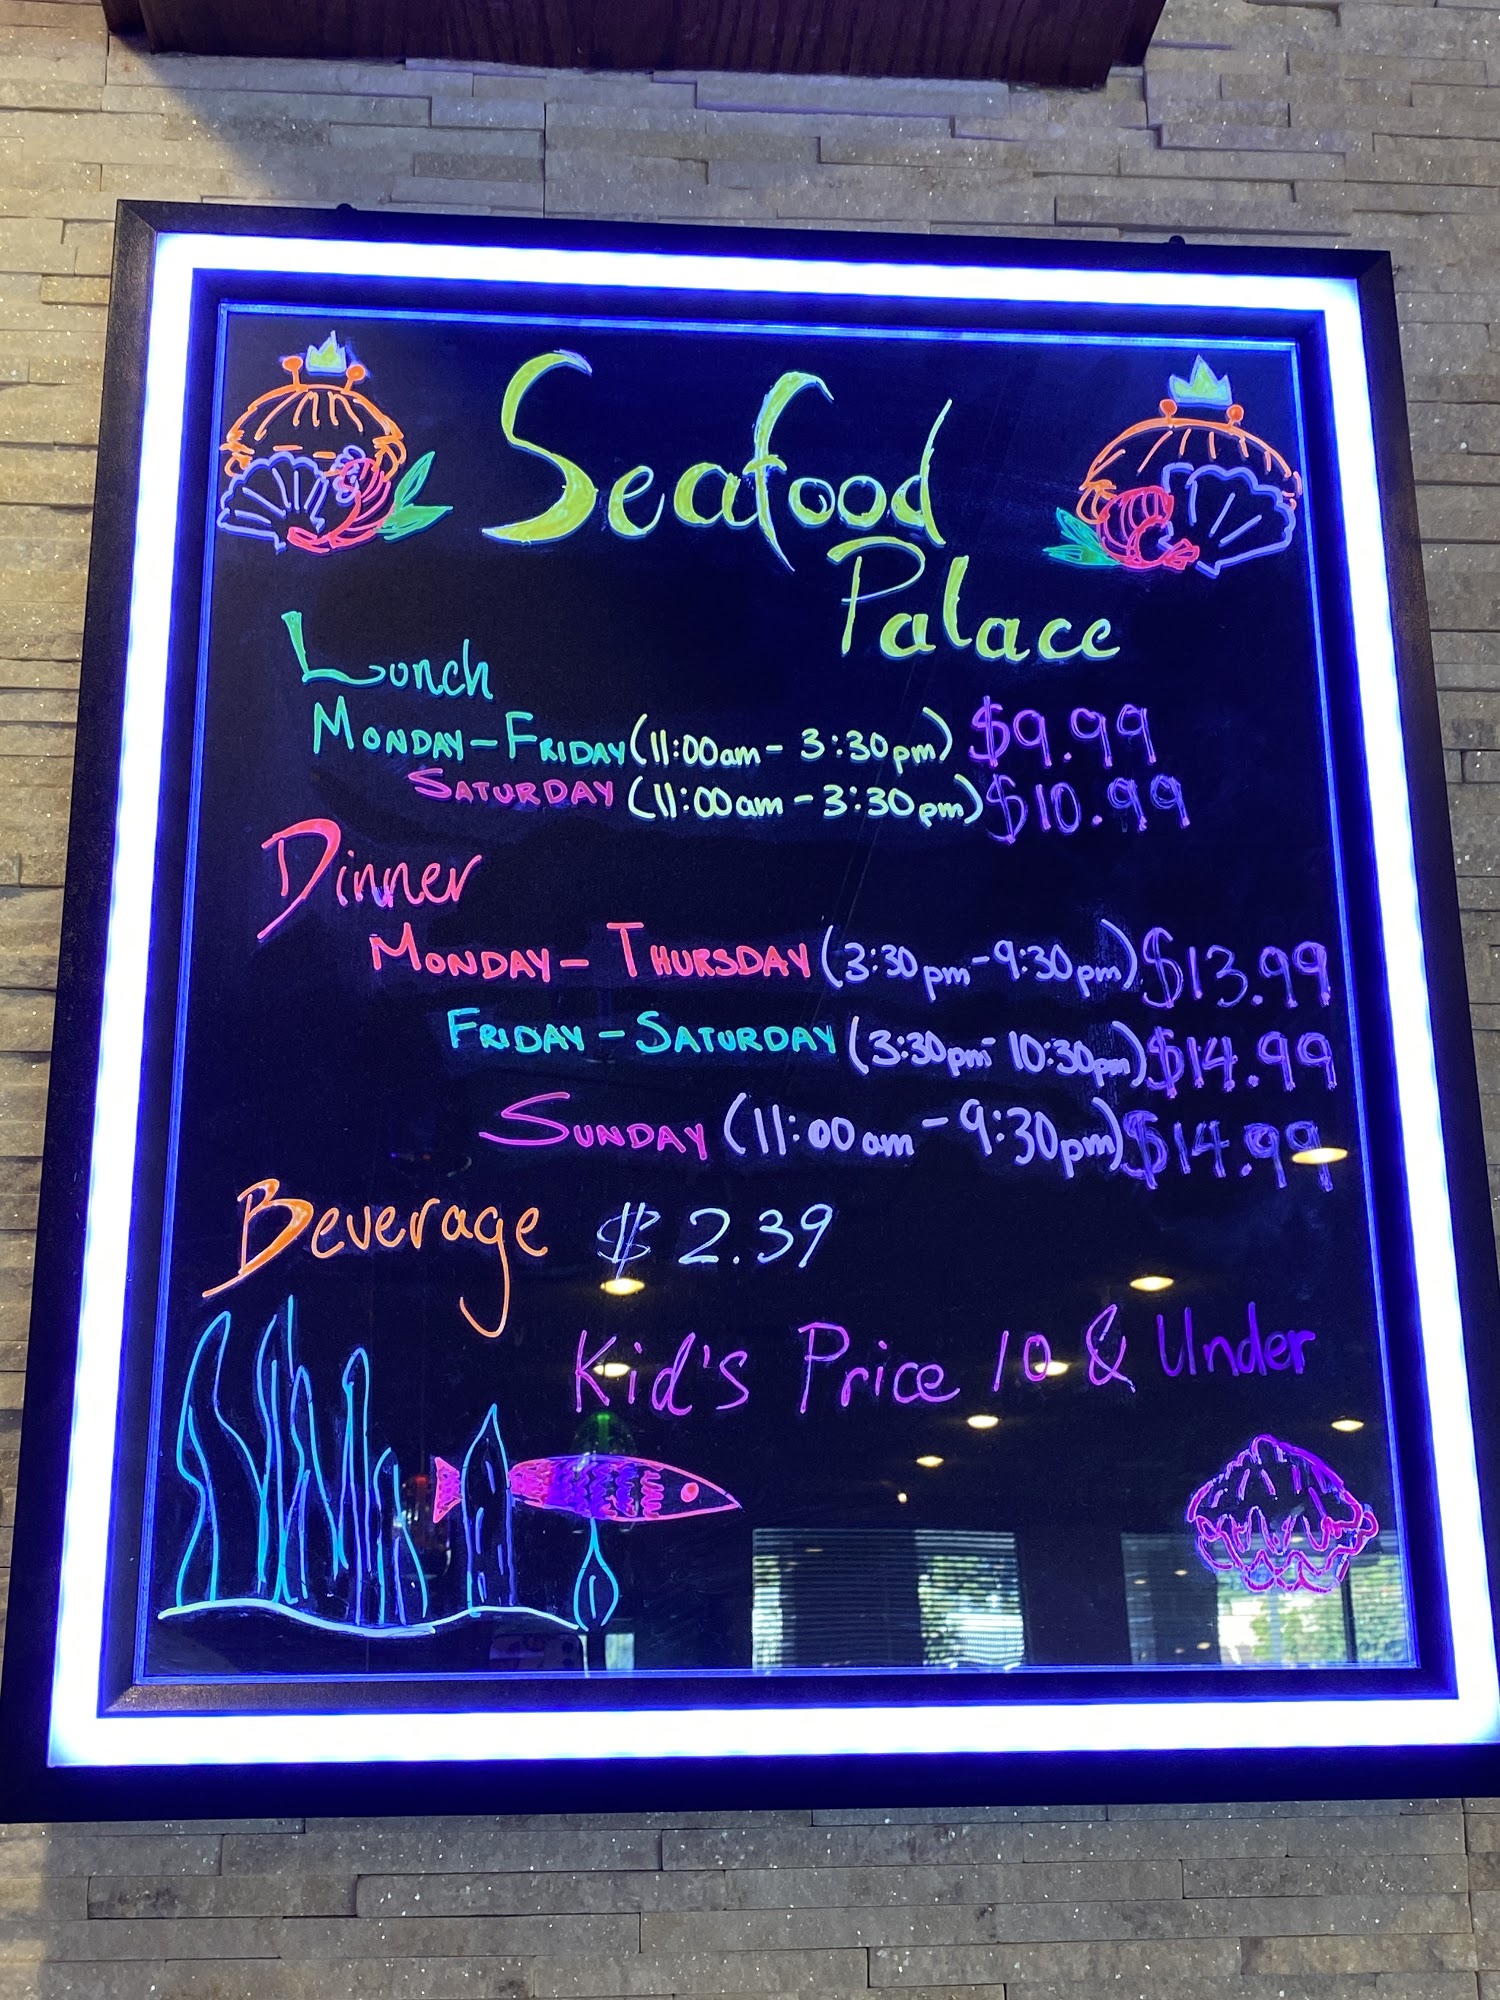 Seafood
Palace
Lunch
MONDAY-FRIDAY (11:00am - 3:30pm) $9.99
SATURDAY (11:00am - 3:30pm) $10.99
Dinner
MONDAY - THURSDAY (3:30pm - 9:30pm) $13.99
FRIDAY - SATURDAY (3:30pm - 10:30pm) $14.99
SUNDAY (11:00am - 9:30pm) $14.99
Beverage $2.39
Kid's Price 10 & Under